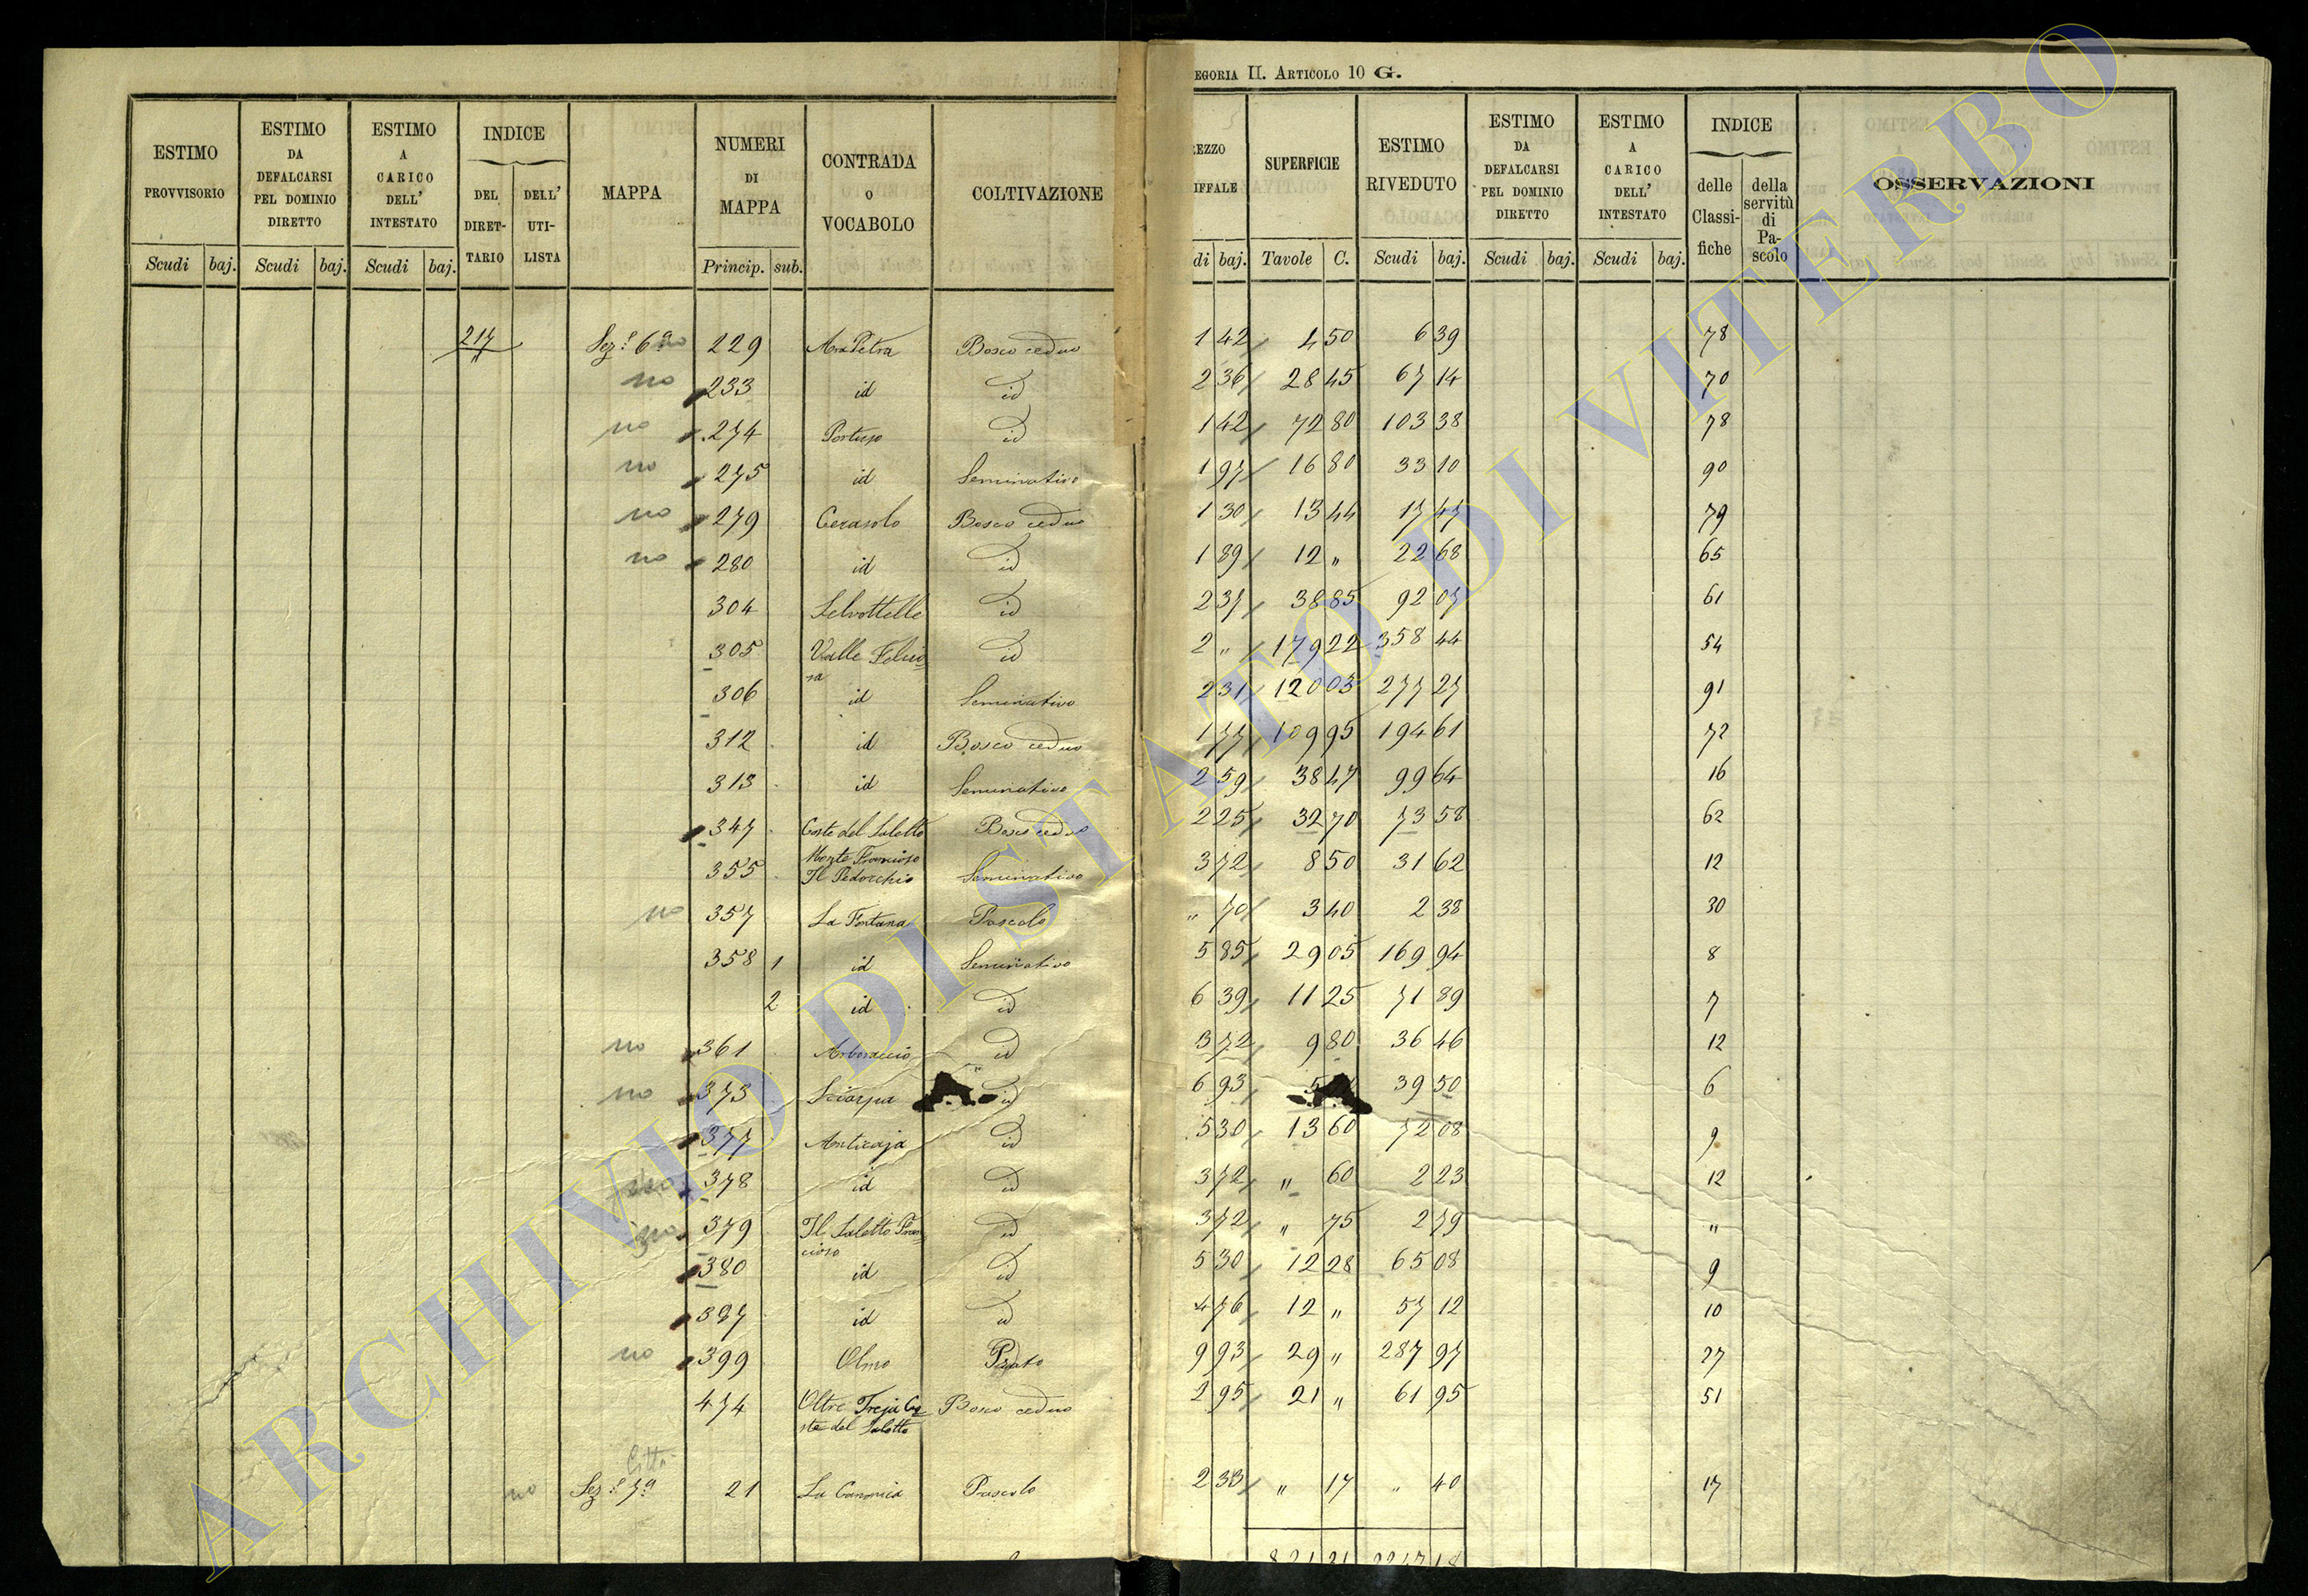 EGORIA II. ARTICOLO 10 G.
ESTIMO PROVVISORIO
ESTIMO DA DEFALCARSI PEL DOMINIO DIRETTO
ESTIMO A CARICO DELL' INTESTATO
INDICE
DEL DIRET- TARIO
DELL' UTI- LISTA
MAPPA
NUMERI DI MAPPA
CONTRADA O VOCABOLO
COLTIVAZIONE
EZZO IFFALE
SUPERFICIE
ESTIMO RIVEDUTO
ESTIMO DA DEFALCARSI PEL DOMINIO DIRETTO
ESTIMO A CARICO DELL' INTESTATO
INDICE
delle Classi- fiche
della servitù di Pa- scolo
OSSERVAZIONI
Scudi baj. Scudi baj. Scudi baj. Princip. sub. di baj. Tavole C. Scudi baj. Scudi baj. Scudi baj.
217 Sez.e 6a no 229 Ara Petra Bosco ceduo 1 42 4 50 6 39 78
no 233 id id 2 36 28 45 67 14 70
no 274 Pertuso id 1 42 72 80 103 38 78
no 275 id Seminativo 1 97 16 80 33 10 90
no 279 Cerasolo Bosco ceduo 1 30 13 44 17 47 79
no 280 id id 1 89 12 " 22 68 65
304 Selvottelle id 2 37 38 85 92 07 61
305 Valle Felici= id 2 " 179 22 358 44 54
sa
306 id Seminativo 2 31 120 03 277 27 91
312 id Bosco ceduo 1 77 109 95 194 61 72
313 id Seminativo 2 59 38 47 99 64 16
347 Coste del Saletto Bosco ceduo 2 25 32 70 73 58 62
Monte Francioso
355 Il Pedocchio Seminativo 3 72 8 50 31 62 12
no 357 La Fontana Pascolo " 70 3 40 2 38 30
358 1 id Seminativo 5 85 29 05 169 94 8
2 id id 6 39 11 25 71 89 7
no 361 Arboraccio id 3 72 9 80 36 46 12
no 373 Sciarpa id 6 93 5 39 50 6
377 Anticaja id 5 30 13 60 72 08 9
378 id id 3 72 " 60 2 23 12
379 Il Saletto Fran= id 3 72 " 75 2 79 "
cioso
380 id id 5 30 12 28 65 08 9
397 id id 4 76 12 " 57 12 10
no 399 Olmo Prato 9 93 29 " 287 97 27
474 Oltre Treja Co= Bosco ceduo 2 95 21 " 61 95 51
ste del Saletto
Città
no Sez.e 7a 21 La Canonica Pascolo 2 33 " 17 " 40 17
821 21 2247 18
ARCHIVIO DI STATO DI VITERBO